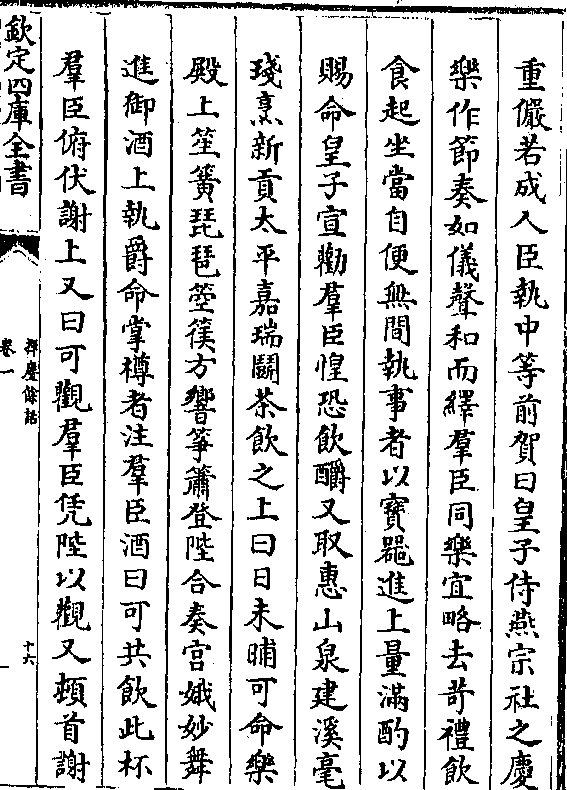 重儼若成人臣執中等前賀曰皇子侍燕宗社之慶
樂作節奏如儀聲和而繹羣臣同樂宜略去苛禮飲
食起坐當自便無間執事者以寶器進上量滿酌以
賜命皇子宣勸羣臣惶恐飲釂又取惠山泉建溪毫
琖烹新貢太平嘉瑞鬭茶飲之上曰日未晡可命樂
殿上笙簧琵琶箜篌方響箏簫登陛合奏宮娥妙舞
進御酒上執爵命掌樽者注羣臣酒曰可共飲此杯
羣臣俯伏謝上又曰可觀羣臣凭陛以觀又頓首謝
欽定四庫全書
揮麈餘話
卷一
十六